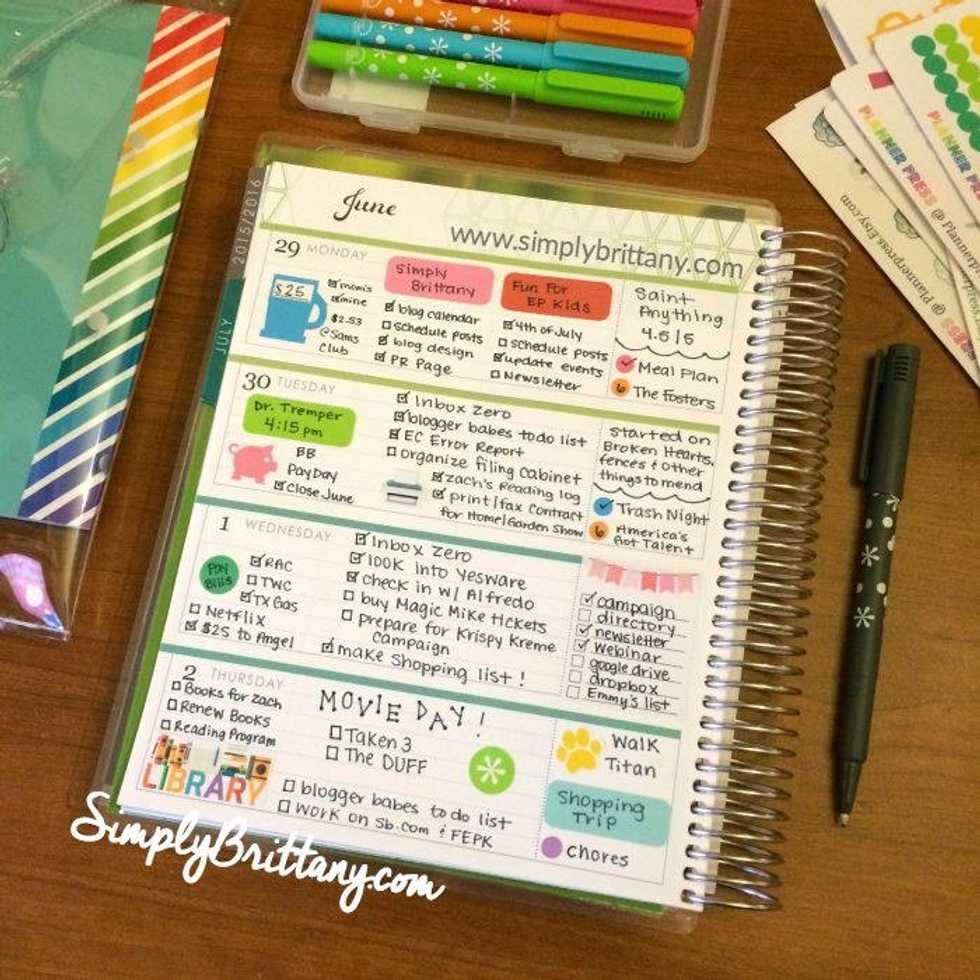 2015/2016
June
www.simplybrittany.com
JULY
29 MONDAY
$25
mom's
mine
$2.53
@Sams
Club
Simply
Brittany
blog calendar
schedule posts
blog design
PR Page
Fun For
EP Kids
4th of July
schedule posts
update events
Newsletter
Saint
Anything
4.5/5
Meal Plan
6 The Fosters
30 TUESDAY
Dr. Tremper
4:15 pm
BB
PayDay
Close June
Inbox Zero
blogger babes to do list
EC Error Report
organize filing Cabinet
zach's Reading log
print/fax Contract
for Home/Garden Show
Started on
Broken Hearts,
fences & other
things to mend
Trash Night
6 America's
Got Talent
1 WEDNESDAY
Pay
Bills
RAC
TWC
TX Gas
Netflix
$25 to Angel
Inbox Zero
look into Yesware
check in w/ Alfredo
buy Magic Mike tickets
prepare for Krispy Kreme
campaign
make Shopping list!
campaign
directory
newsletter
webinar
google drive
dropbox
Emmy's list
2 THURSDAY
Books for zach
Renew Books
Reading Program
LIBRARY
MOVIE DAY!
Taken 3
The DUFF
blogger babes to do list
work on Sb.com & FEPK
Walk
Titan
Shopping
Trip
Chores
SimplyBrittany.com
PLANNER PRESS
PLANNER PRESS
@ Plannerpress.Etsy.com